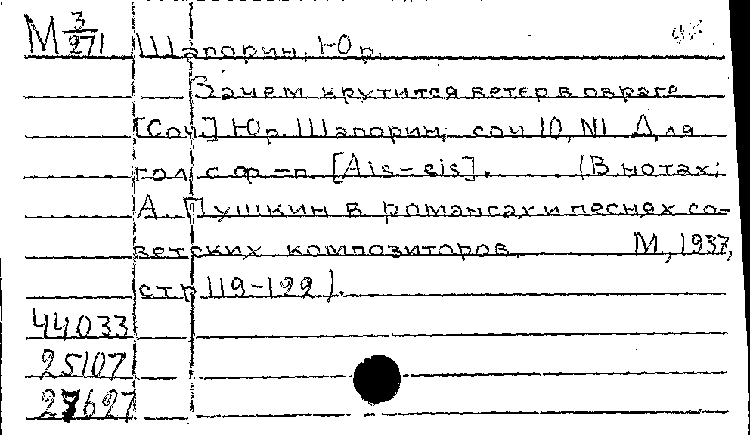 М 3/271 Шапорин, Юр.
Зачем крутится ветер в овраге
[Соч.] Юр. Шапорин, соч 10, N1. Для
гол с ф-п. [Ais-eis]. (В нотах:
А. Пушкин в романсах и песнях со-
ветских композиторов М, 1937,
стр 119-122).
44033
25107
27627